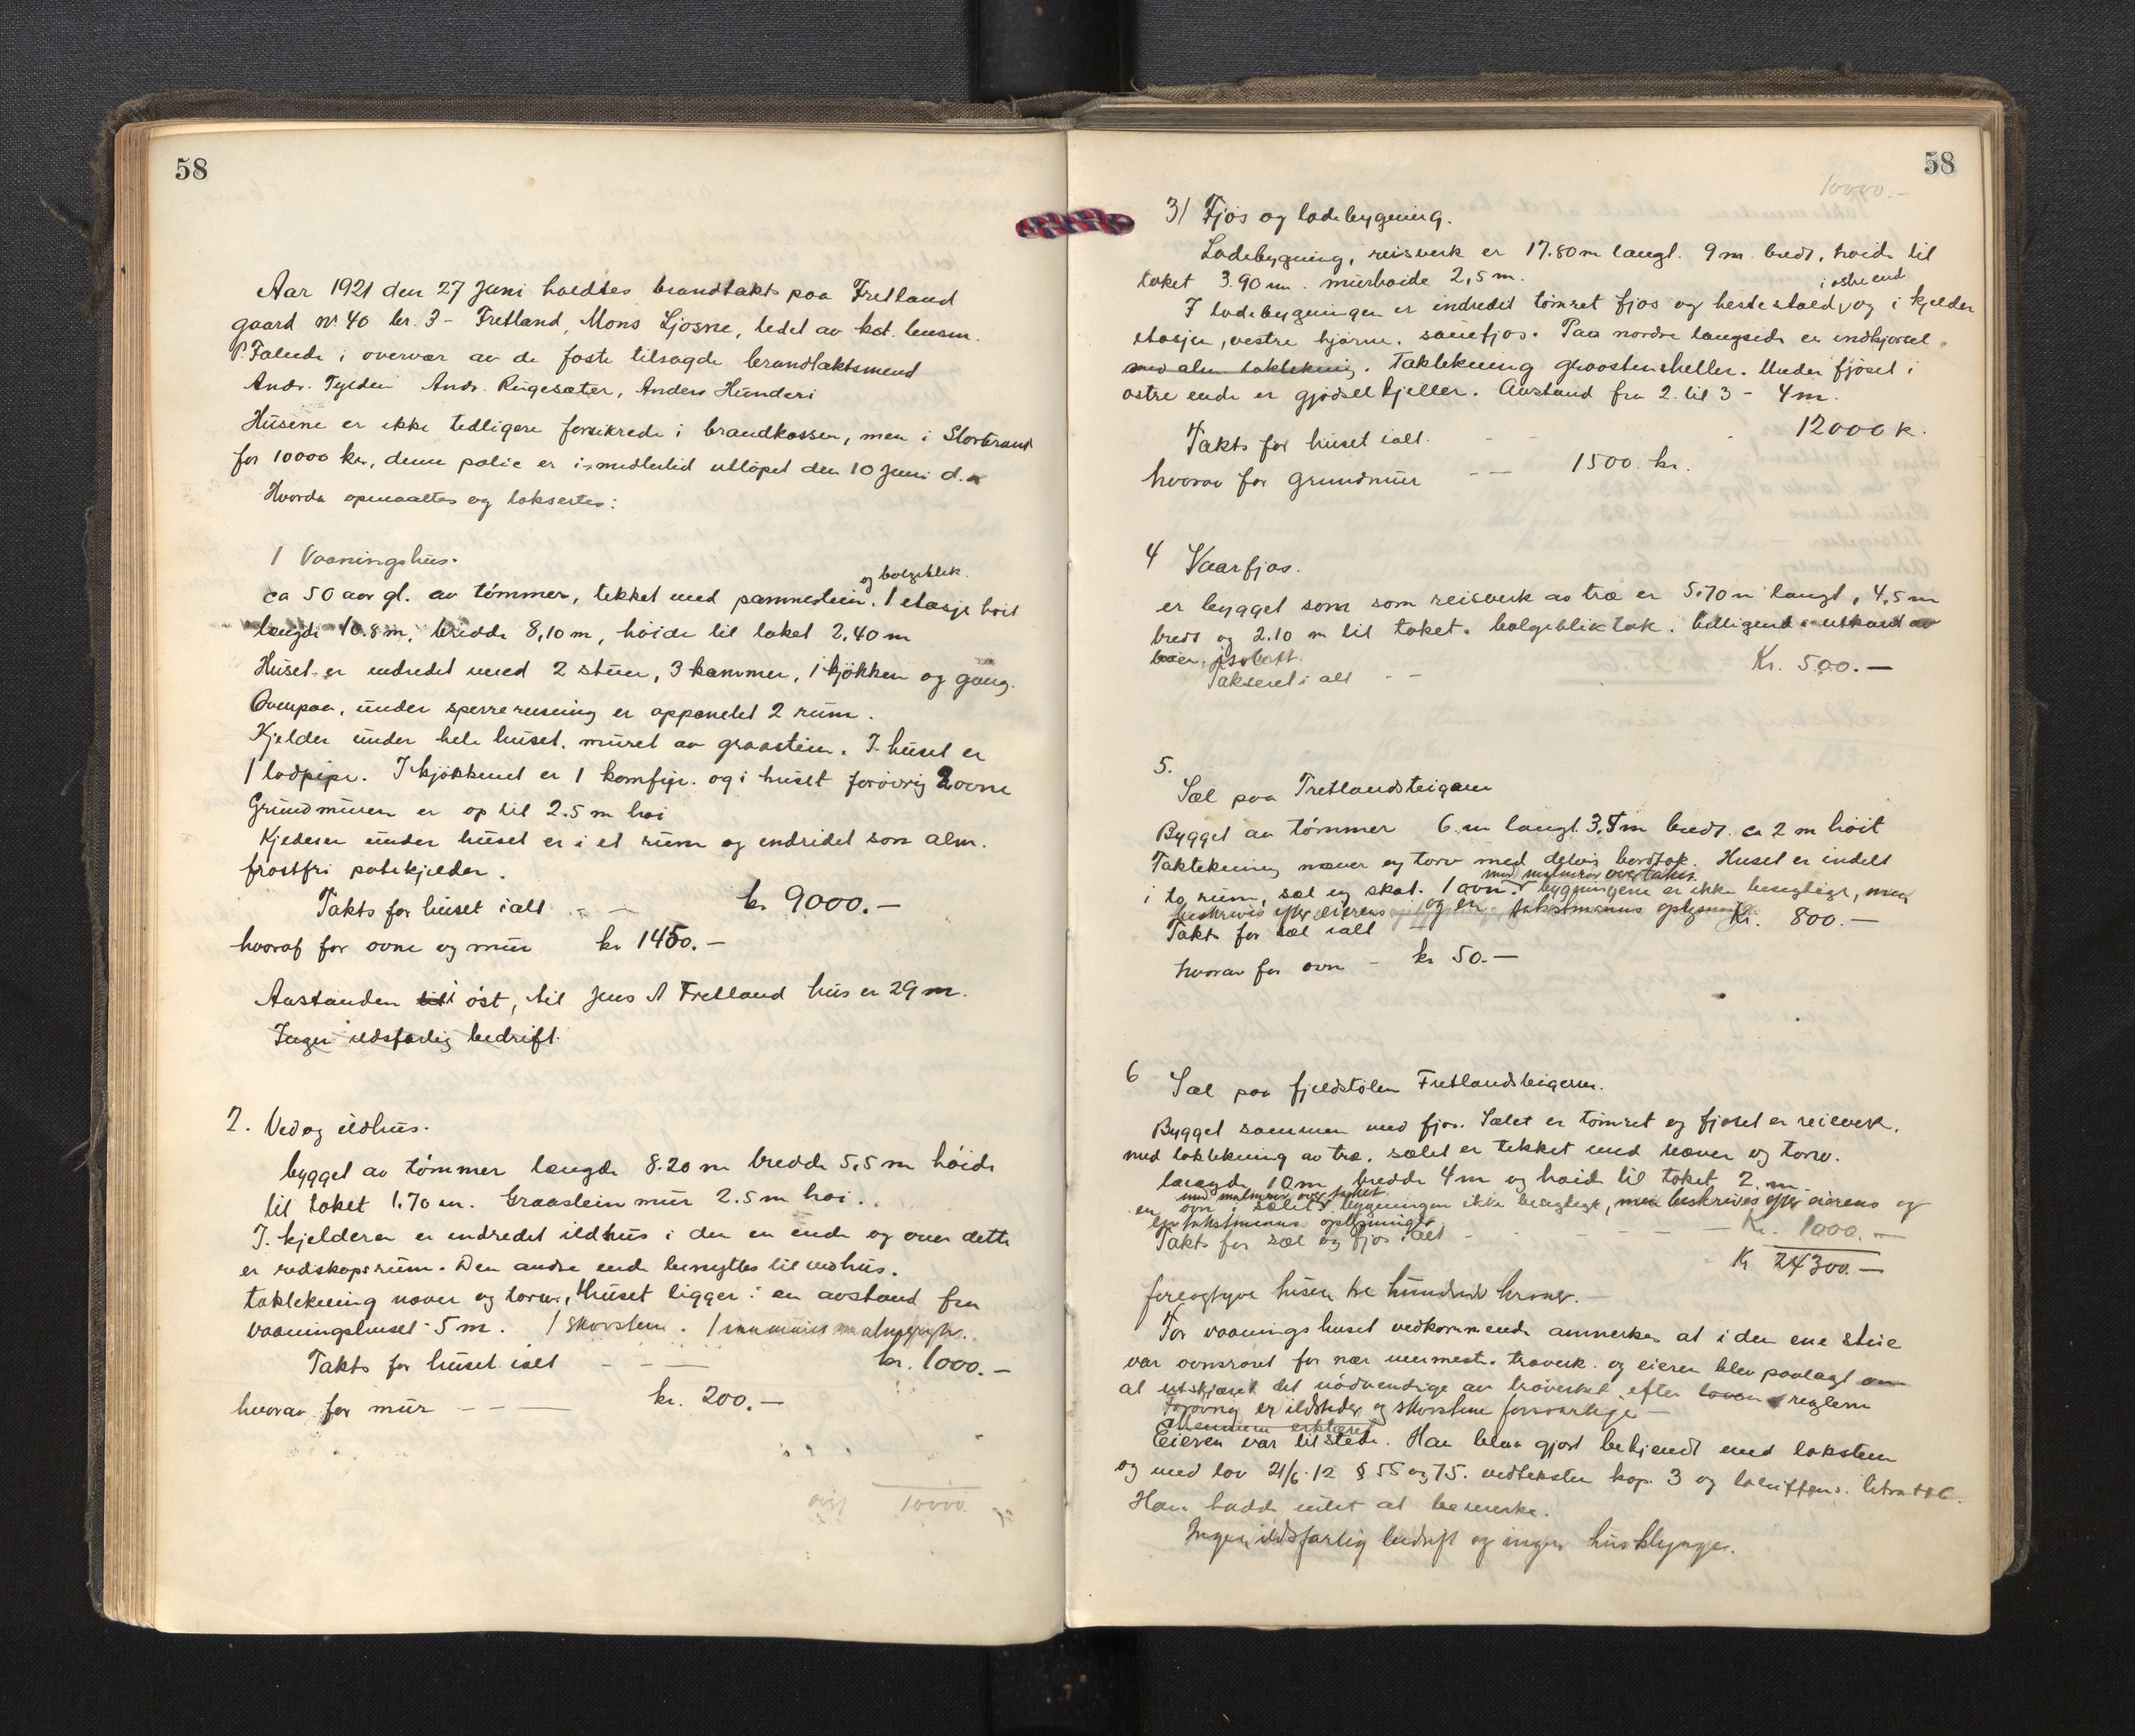 58
Aar 1921 den 27 Juni holdtes brandtakt paa Fretland
gaard nr 40 br. 3 - Fretland, Mons Ljosne, ledet av kst. lensm.
P. Falude i overvær av de faste tilsagde brandtaktsmend
Andr. Tylden Andr. Ringesæter, Anders Hunderi
Husene er ikke tedligere forsikrede i brandkassen, men i Storbrand
for 10000 kr, denne polise er imidlertid utløpet den 10 Juni d.a
Hvorda opmaaltes og taksertes:
1 Vaaningshus.
og bølgeblik.
ca 50 aar gl. av tømmer, tekket med pannestein. 1 etasje høit
længde 10.8 m, bredde 8,10 m, høide til taket 2.40 m
Huset er indredet med 2 stuer, 3 kammer, 1 kjøkken og gang.
Ovenpaa, under sperrereisning er oppanelet 2 rum.
Kjelder under hele huset, muret av graastein. I huset er
1 lodpipe. I kjøkkenet er 1 komfyr. og i huset forøvrig 2 ovne
Grundmuren er op til 2.5 m høi
Kjederen under huset er i et rum og indridet som alm.
frostfri potetkjelder.
Takts for huset ialt - — kr 9000.—
hvoraf for ovne og mur kr 1450.—
Avstanden i øst, til Jens A Fretland hus er 29 m.
Ingen ildsfarlig bedrift.
2. Ved og ildhus.
bygget av tømmer længde 8.20 m bredde 5,5 m høide
til taket 1.70 m. Graastein mur 2.5 m høi.
I kjelderen er indredet ildhus i den en ende og over dette
er redskapsrum. Den andre ende benyttes til vedhus.
taktekning næver og torv, Huset ligger i en avstand fra
vaaningshuset 5 m. 1 skorsten. 1
Takts for huset ialt - - — kr. 1000.—
hvorav for mur - - — kr. 200.—
10000.
58
10000.-
3) Fjøs og ladebygning.
Ladebygning, reisverk er 17.80 m langt. 9 m. bredt, høide til
taket 3.90 m. murhøide 2,5 m.
i østre end
I ladebygningen er indredet tømret fjøs og hestestald, og i kjelder
etasjen, vestre hjørne, sauefjøs. Paa nordre langside er indkjørsel.
med alm taktekning. Taktekning graastensheller. Under fjøset i
østre ende er gjødselkjeller. Avstand fra 2 til 3 - 4 m.
Takts for huset ialt. - - 12000 k.
hvorav for grundmur - — 1500. kr.
4 Vaarfjøs.
er bygget som som reisverk av træ er 5.70 m langt, 4,5 m
bredt og 2.10 m til taket. bølgebliktak.
Takseret i alt - — Kr. 500.—
5.
Sæl paa Fretlandsteigen
Bygget av tømmer 6 m langt 3.5 m bredt. ca 2 m høit
Taktekning næver og torv med delvis bordtak. Huset er indelt
med malmrør over taket.
i to rum, sæl og skot. 1 ovn. bygningene er ikke besegtiget, men
beskrives efter eierens og en takstmanns oplysning
Takts for sæl ialt — Kr. 800.—
hvorav for ovn - kr 50.—
6 Sæl paa fjeldstølen Fretlandsteigen.
Bygget sammen med fjøs. Sælet er tømret og fjøset er reisverk.
med taktekning av træ. sælet er tekket med næver og torv.
længde 10 m bredde 4 m og høide til taket 2 m
med malmrør over taket
en ovn i sælet. bygningen ikke besegtiget, men beskrives efter eierens og
en takstmanns oplysninger.
Takts for sæl og fjøs ialt - - - — Kr. 1000.—
Kr 24300.—
fireogtyve tusen tre hundrede kroner.—
For vaaningshuset vedkommende anmerkes at i den ene stue
var ovnsrøret for nær nærmeste træverk. og eieren blev paalagt
at utskjæret det nødvendige av træverket efter loven reglern
Forøvrig er ildsteder og skorstene forsvarlige —
Eieren var tilstede. Han blev gjort bekjendt med taksten
og med lov 21/6-12 § 55 og 75. vedtekster kap. 3 og tariffens. litra
Han hadde intet at bemerke.
Ingen ildsfarlig bedrift og ingen husklynge.